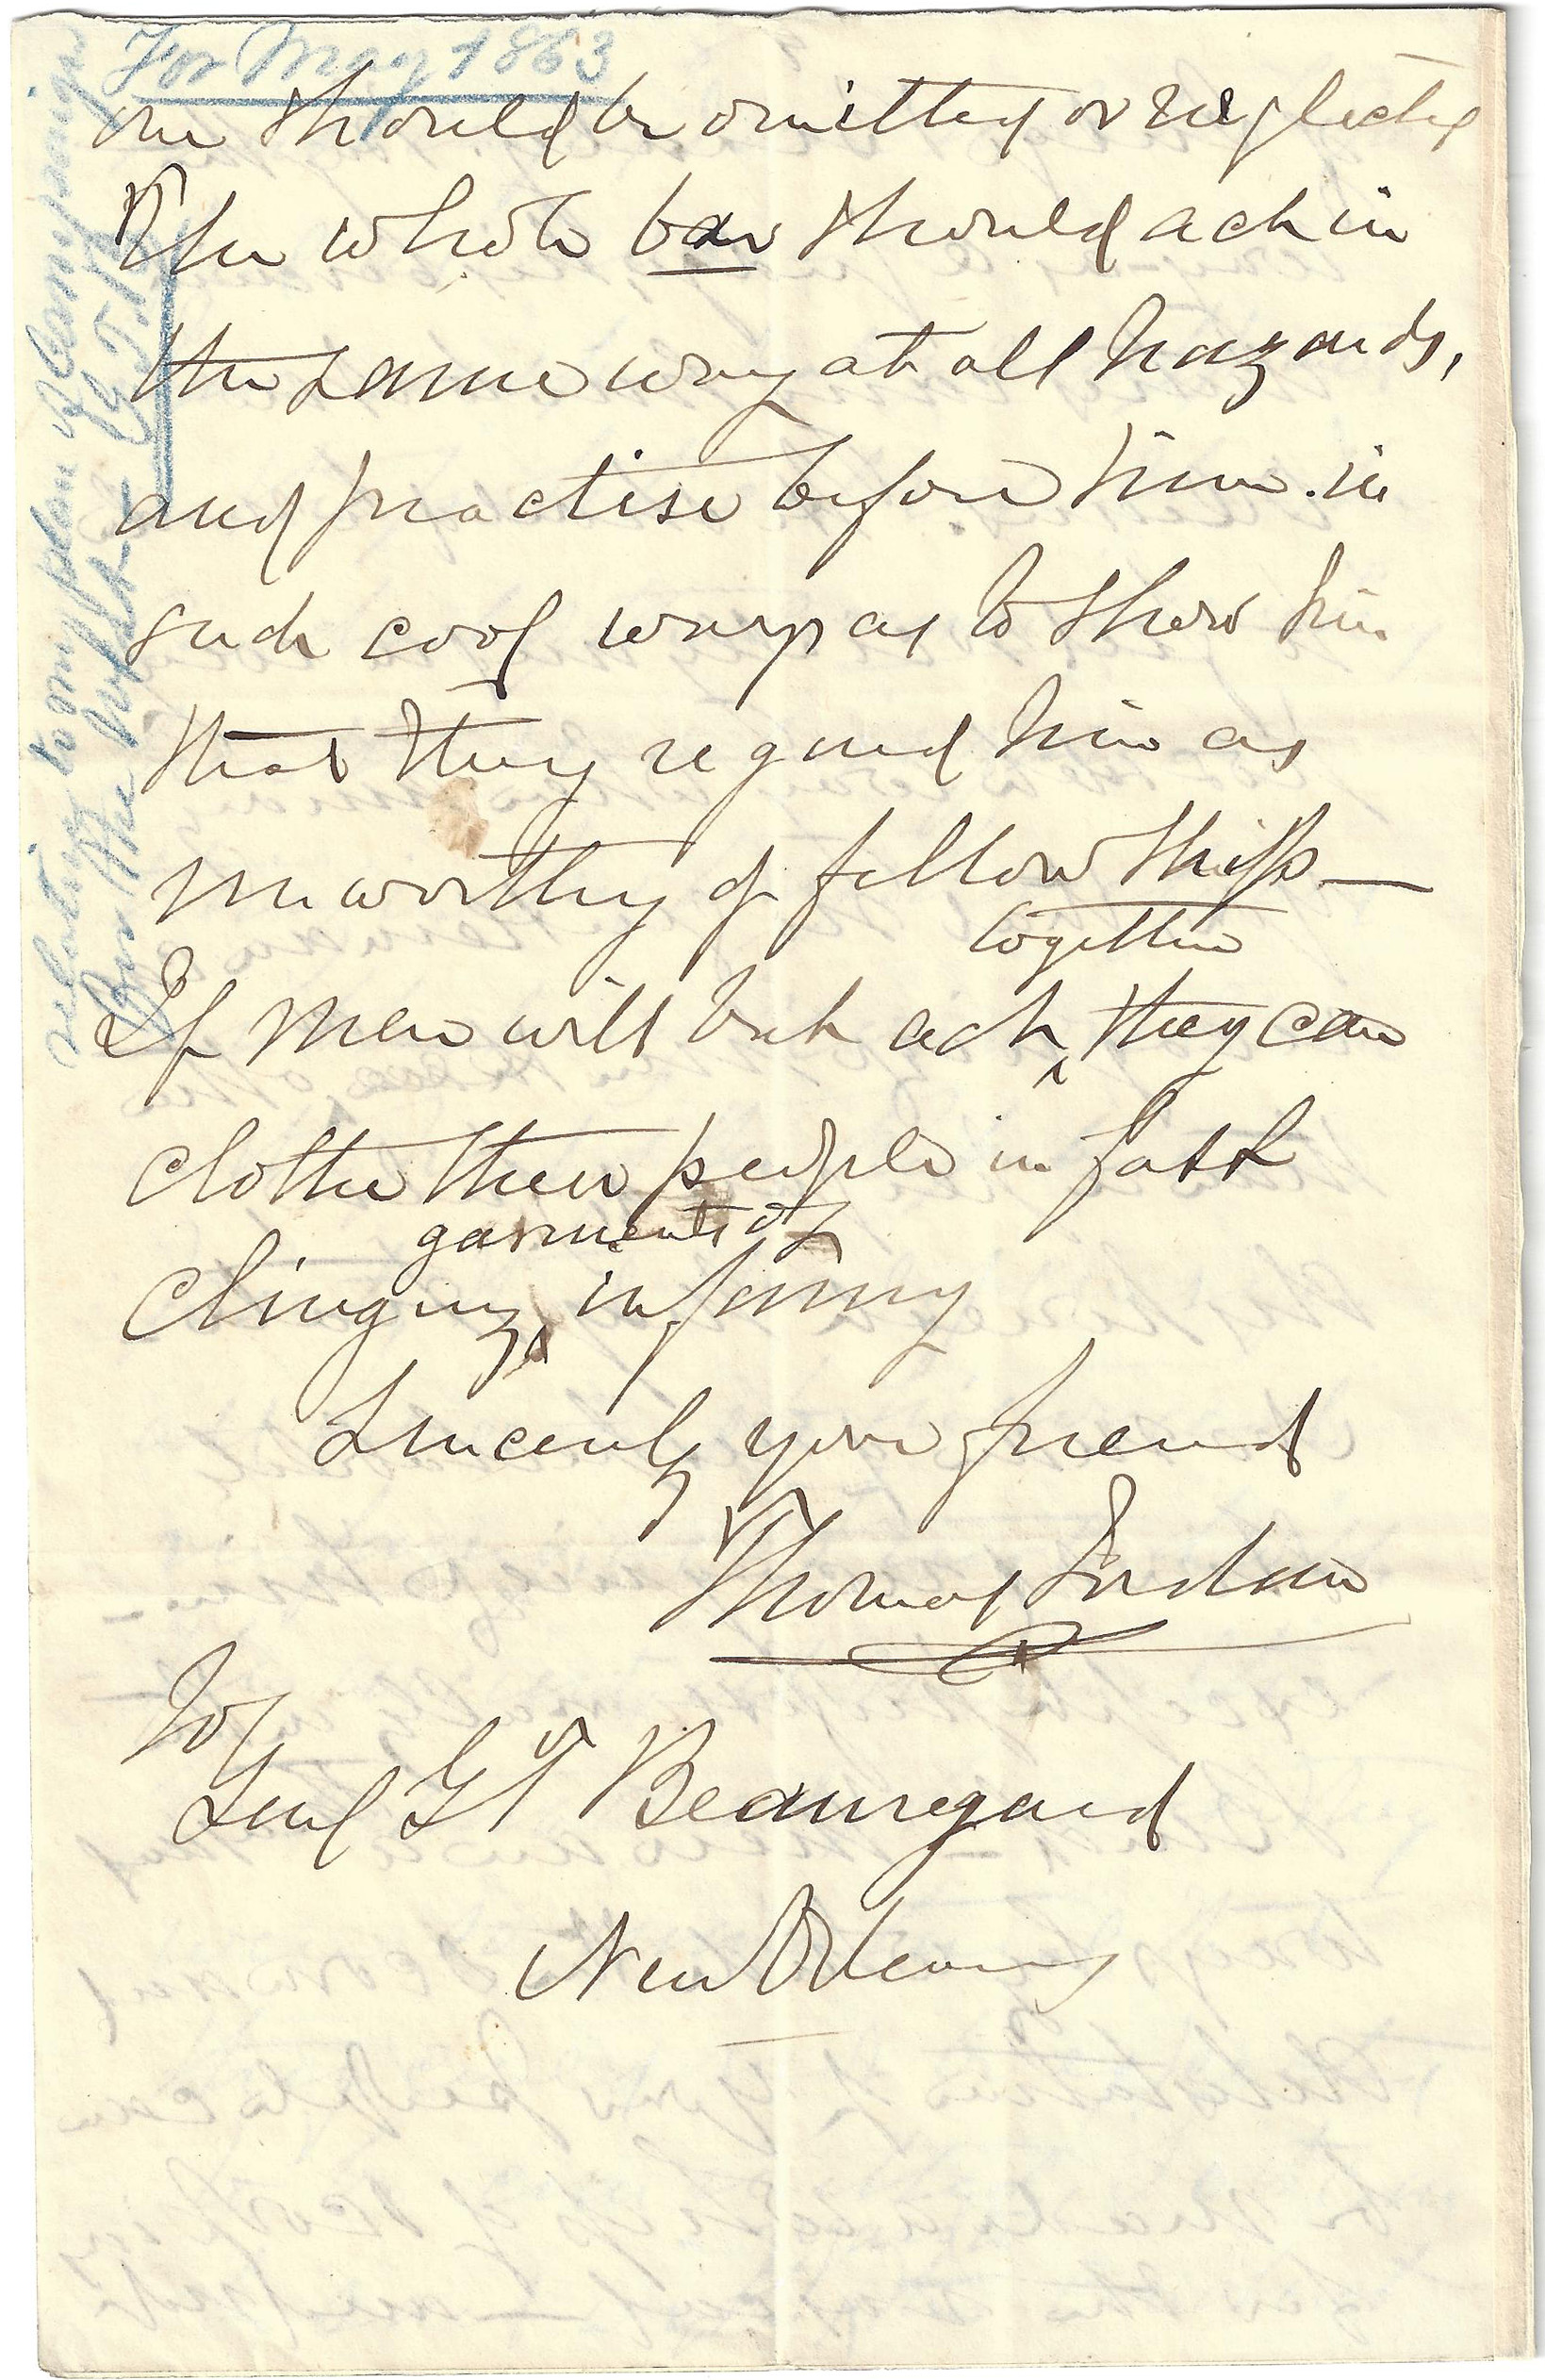 For May 1863
one should be omitted or neglected
The whole bar should act in
the same way at all hazards,
and practise before him in
such cool way as to show him
that they regard him as
unworthy of fellowship —
together
If men will but act they can
clothe these people in fast
garments of
clinging infamy
Sincerely your friend
Thomas Jordan
To
Genl G T Beauregard
New Orleans
relative to my plan of Campaign
for the